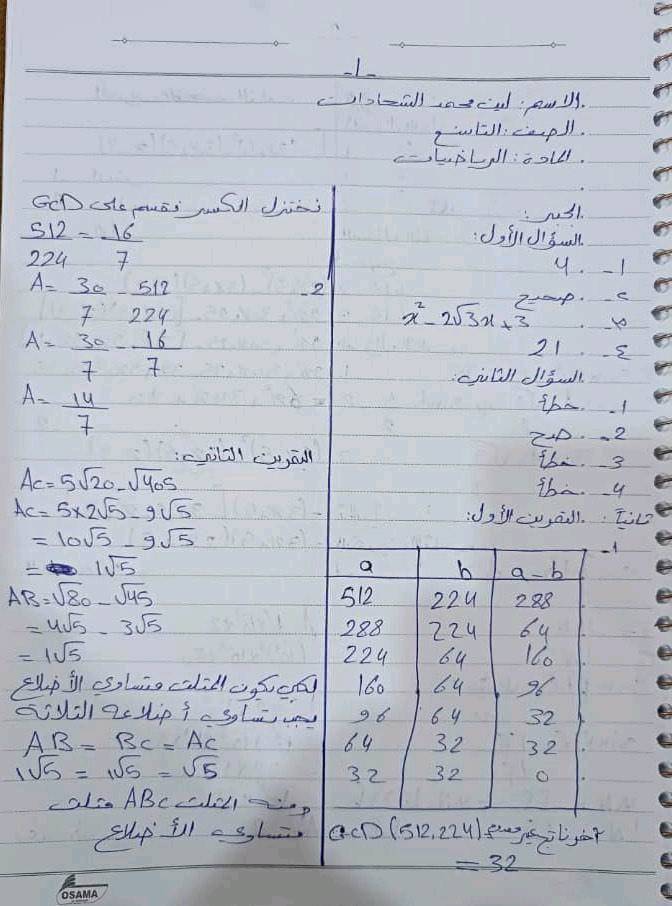 -1-
الاسم: ليث محمد الشحادات
الصف: التاسع
المادة: الرياضيات
الجبر:
السؤال الأول:
1- 4
2- صحيح
3- x² - 2√3x + 3
4- 21
السؤال الثاني:
1- خطأ
2- صح
3- خطأ
4- خطأ
ثانياً: التمرين الأول:
1-
a b a-b
512 224 288
288 224 64
224 64 160
160 64 96
96 64 32
64 32 32
32 32 0
آخر ناتج غير معدوم GCD (512,224)
= 32
نختزل الكسر نقسم على GCD
512/224 = 16/7
2- A = 30/7 - 512/224
A = 30/7 - 16/7
A = 14/7
التمرين الثاني:
AC = 5√20 - √405
AC = 5×2√5 - 9√5
= 10√5 - 9√5
= 1√5
AB = √80 - √45
= 4√5 - 3√5
= 1√5
لكي يكون المثلث متساوي الأضلاع
يجب تساوي أضلاعه الثلاثة
AB = BC = AC
1√5 = 1√5 = √5
ومنه المثلث ABC مثلث
متساوي الأضلاع
OSAMA